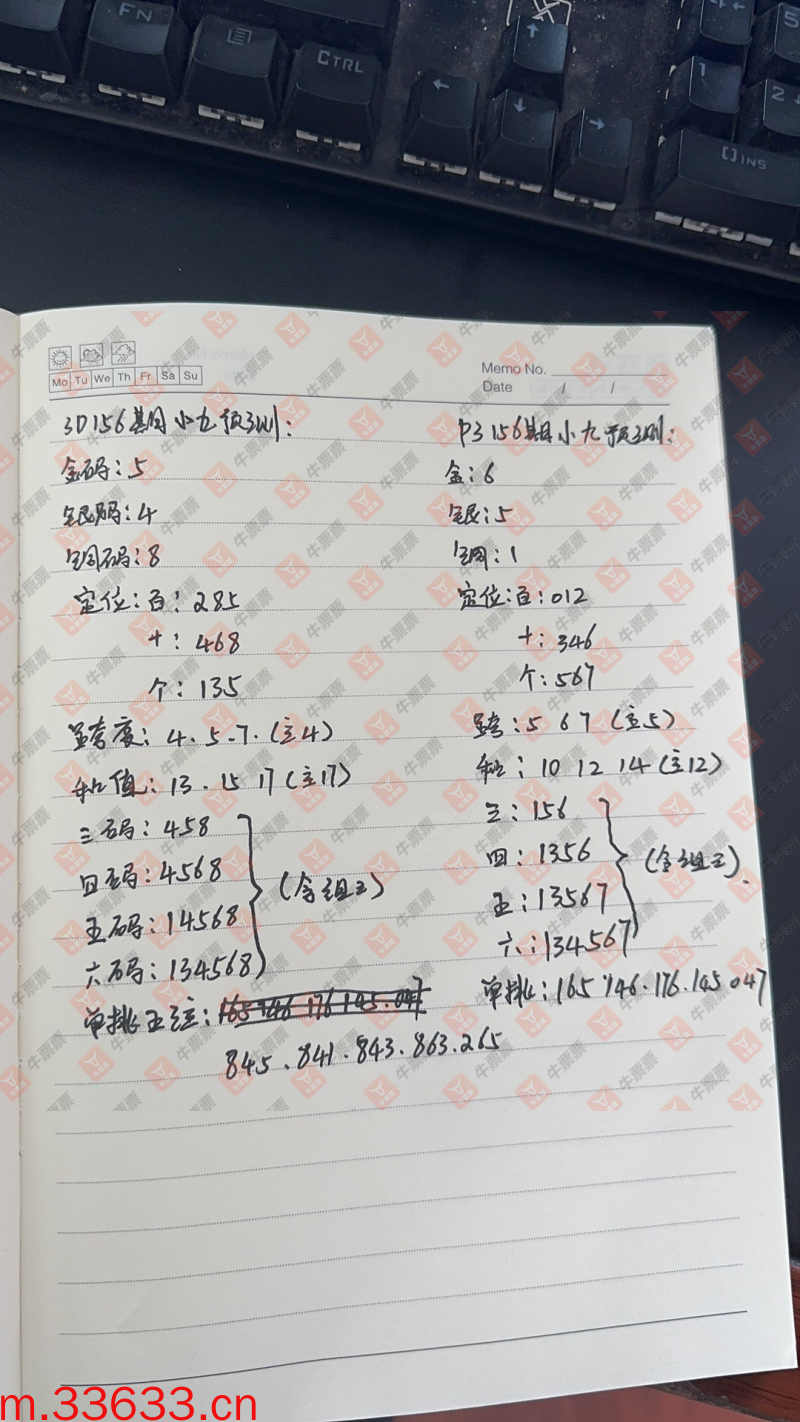 FN
CTRL
1
2
INS
Memo No.
Date / /
Mo Tu We Th Fr Sa Su
3D156期小九预测:
金码:5
银码:4
铜码:8
定位:百:285
十:468
个:135
跨度:4.5.7.(主4)
和值:13.15 17(主17)
三码:458
四码:4568
五码:14568
六码:134568
(含组三)
单挑五注:165 746 176 145.047
845.841.843.863.265
P3 156期小九预测:
金:6
银:5
铜:1
定位:百:012
十:346
个:567
跨:5 6 7(主5)
和:10 12 14(主12)
三:156
四:1356
五:13567
六:134567
(含组三).
单挑:165 746.176.145 047
牛票票
m.33633.cn